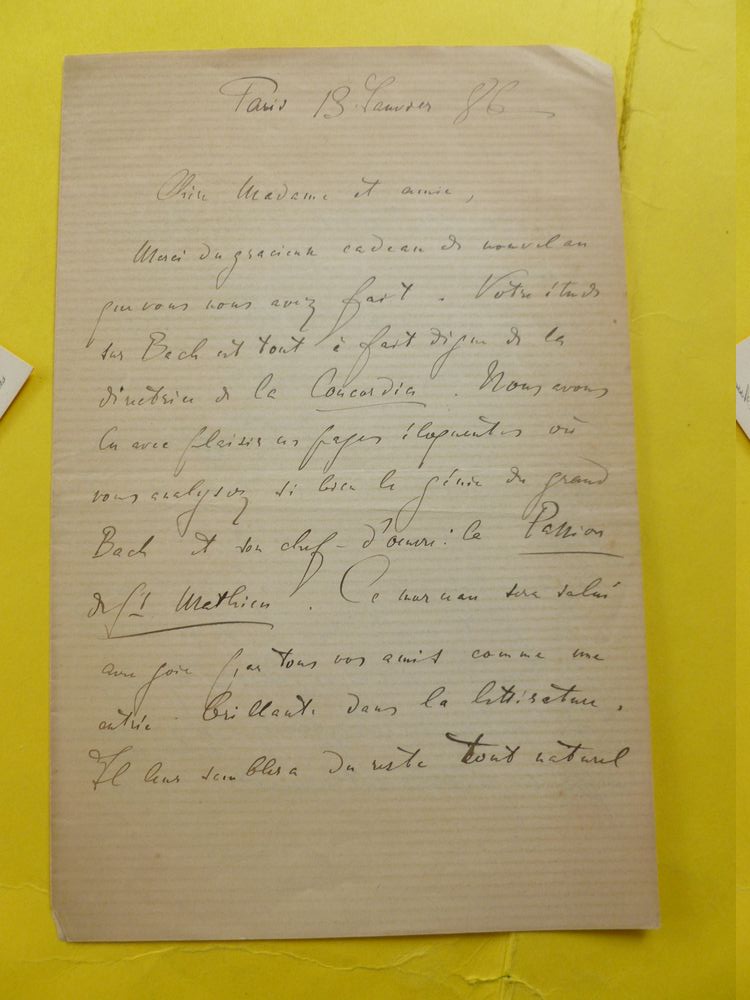 Paris 13 Janvier 86
Chère Madame et amie,
Merci du gracieux cadeau de nouvel an
que vous nous avez fait. Votre étude
sur Bach est tout à fait digne de la
directrice de la Concordia. Nous avons
lu avec plaisir ces pages éloquentes où
vous analysez si bien le génie du grand
Bach et son chef-d'œuvre: la Passion
de St Mathieu. Ce morceau sera salué
avec joie par tous vos amis comme une
entrée brillante dans la littérature.
Il leur semblera du reste tout naturel